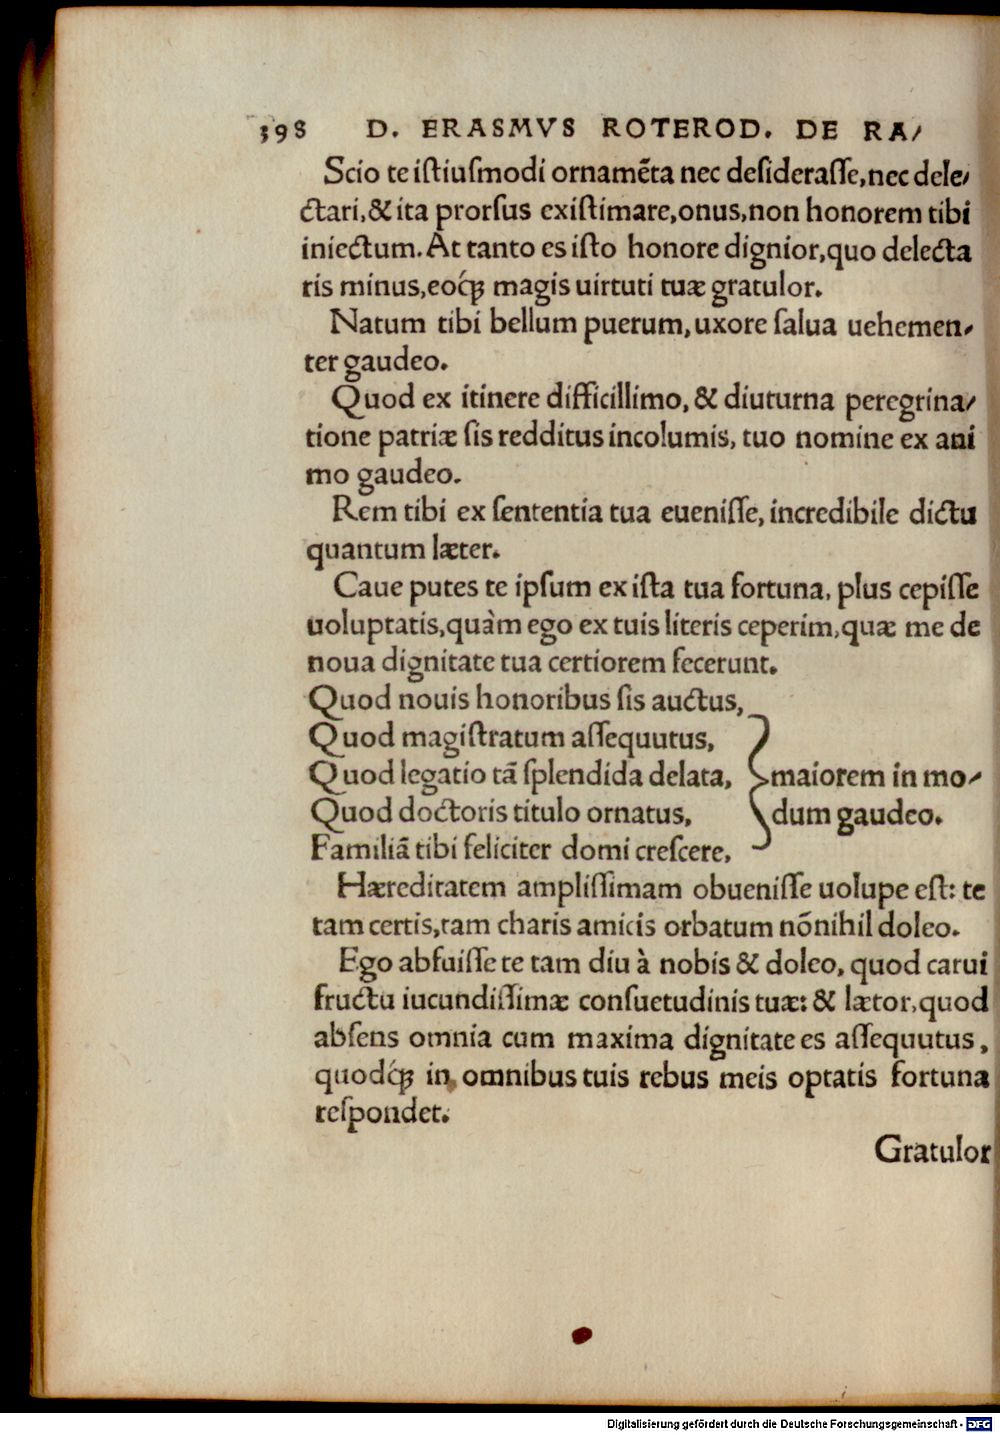 398 D. ERASMVS ROTEROD. DE RA/
Scio te iſtiuſmodi ornamẽta nec deſideraſſe, nec dele/
ctari, & ita prorſus exiſtimare, onus, non honorem tibi
iniectum. At tanto es iſto honore dignior, quo delecta
ris minus, eoq́ꝫ magis uirtuti tuæ gratulor.
Natum tibi bellum puerum, uxore ſalua uehemen/
ter gaudeo.
Quod ex itinere difficillimo, & diuturna peregrina/
tione patriæ ſis redditus incolumis, tuo nomine ex ani
mo gaudeo.
Rem tibi ex ſententia tua eueniſſe, incredibile dictu
quantum læter.
Caue putes te ipſum ex iſta tua fortuna, plus cepiſſe
uoluptatis, quàm ego ex tuis literis ceperim, quæ me de
noua dignitate tua certiorem fecerunt.
Quod nouis honoribus ſis auctus,
Quod magiſtratum aſſequutus,
Quod legatio tã ſplendida delata, maiorem in mo/
Quod doctoris titulo ornatus, dum gaudeo.
Familiã tibi feliciter domi creſcere,
Hæreditatem ampliſſimam obueniſſe uolupe eſt: te
tam certis, tam charis amicis orbatum nõnihil doleo.
Ego abfuiſſe te tam diu à nobis & doleo, quod carui
fructu iucundiſſimæ conſuetudinis tuæ: & lætor, quod
abſens omnia cum maxima dignitate es aſſequutus,
quodq́ꝫ in omnibus tuis rebus meis optatis fortuna
reſpondet.
Gratulor
Digitalisierung gefördert durch die Deutsche Forschungsgemeinschaft - DFG